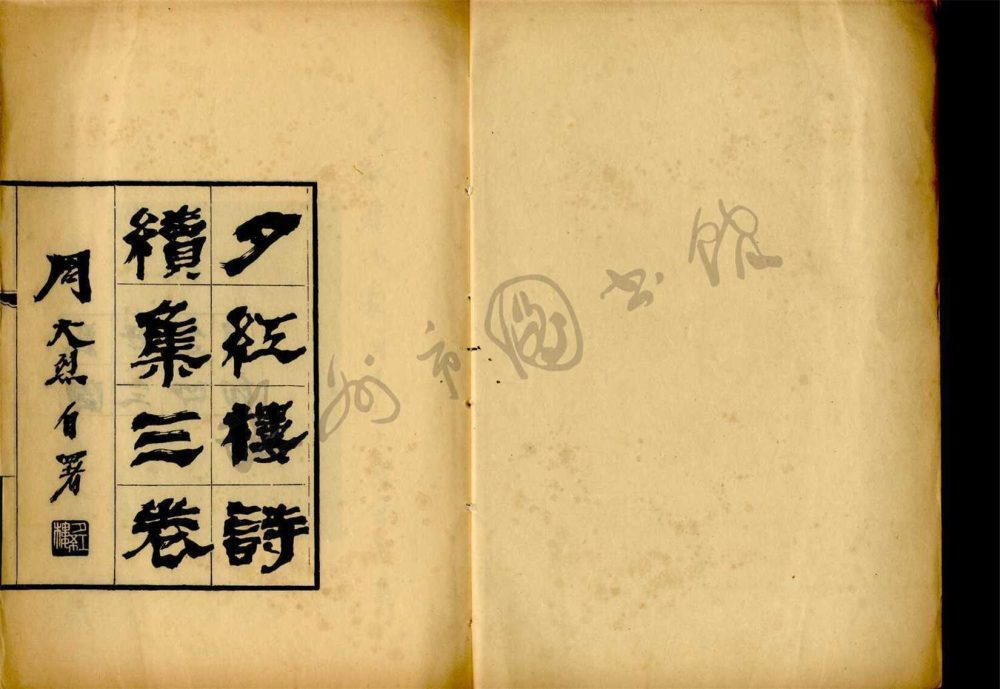 夕紅樓詩
續集三卷
周大烈自署
夕紅樓
州市圖书館